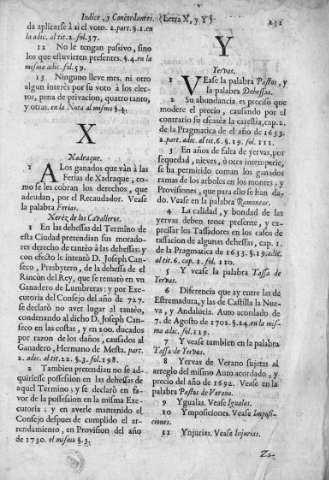 Indice, y Concordantes. (Letra X, y Y)
232
da aplicarse à si el voto. 2. part. §. 2. en
la adic. al tit. 2. fol. 37.
12 No le tengan passivo, sino
los que estuvieren presentes. §. 4. en la
misma adic. fol. 59.
13 Ninguno lleve mrs. ni otro
algun interès por su voto à los elec-
tos, pena de privacion, quatro tanto,
y otras. en la Nota al mismo §. 4.
X
Xadraque.
1 A Los ganados que vàn à las
Ferias de Xadraque, co-
mo se les cobran los derechos, que
adeudan, por el Recaudador. Vease
la palabra Ferias.
Xerèz de los Cavalleros.
1 En las dehessas del Termino de
esta Ciudad pretendian sus morado-
res derecho de tantèo à las dehessas: y
con efecto le intentò D. Joseph Can-
seco, Presbytero, de la dehessa de el
Rincon del Rey, que se rematò en vn
Ganadero de Lumbreras; y por Exe-
cutoria del Consejo del año de 727.
se declarò no aver lugar al tantèo,
condenando al dicho D. Joseph Can-
seco en las costas, y en 200. ducados
por razon de los daños, causados al
Ganadero, Hermano de Mesta. part.
2. adic. al tit. 22. §. 3. fol. 198.
2 Tambien pretendian no se ad-
quiriesse possesion en las dehessas de
aquel Termino; y se declarò en fa-
vor de la possesion en la misma Exe-
cutoria; y en averle mantenido el
Consejo despues de cumplido el ar-
rendamiento, en Provision del año
de 1730. el mismo §. 3.
Y
Yervas.
1 VEase la palabra Pastos, y
la palabra Dehessas.
2 Su abundancia es preciso que
modere el precio, causando por el
contrario su escasèz la carestia, cap. 2.
de la Pragmatica de el año de 1633.
2. part. adic. al tit. 6. §. 19. fol. 111.
3 En años de falta de yervas, por
sequedad, nieves, ù otra intemperie,
se ha permitido coman los ganados
ramas de los arboles en los montes, y
Provisiones, que para ello se han da-
do. Vease en la palabra Ramonear.
4 La calidad, y bondad de las
yervas deben tener presente, y ex-
pressar los Tassadores en los casos de
tassacion de algunas dehessas, cap. 1.
de la Pragmatica de 1633. §. 19. adic.
al tit. 6. cap. 1. fol. 110.
5 Y vease la palabra Tassa de
Yervas.
6 Diferencia que ay entre las de
Estremadura, y las de Castilla la Nue-
va, y Andalucia. Auto acordado de
7. de Agosto de 1702. §. 24. en la mis-
ma adic. fol. 115.
7 Y vease tambien en la palabra
Tassa de Yervas.
8 Yervas de Verano sujetas al
arreglo del mismo Auto acordado, y
precio del año de 1692. Vease en la
palabra Pastos de Verano.
9 Ygualas. Vease Igualas.
10 Ymposiciones. Vease Imposi-
ciones.
11 Ynjurias. Vease Injurias.
Za-